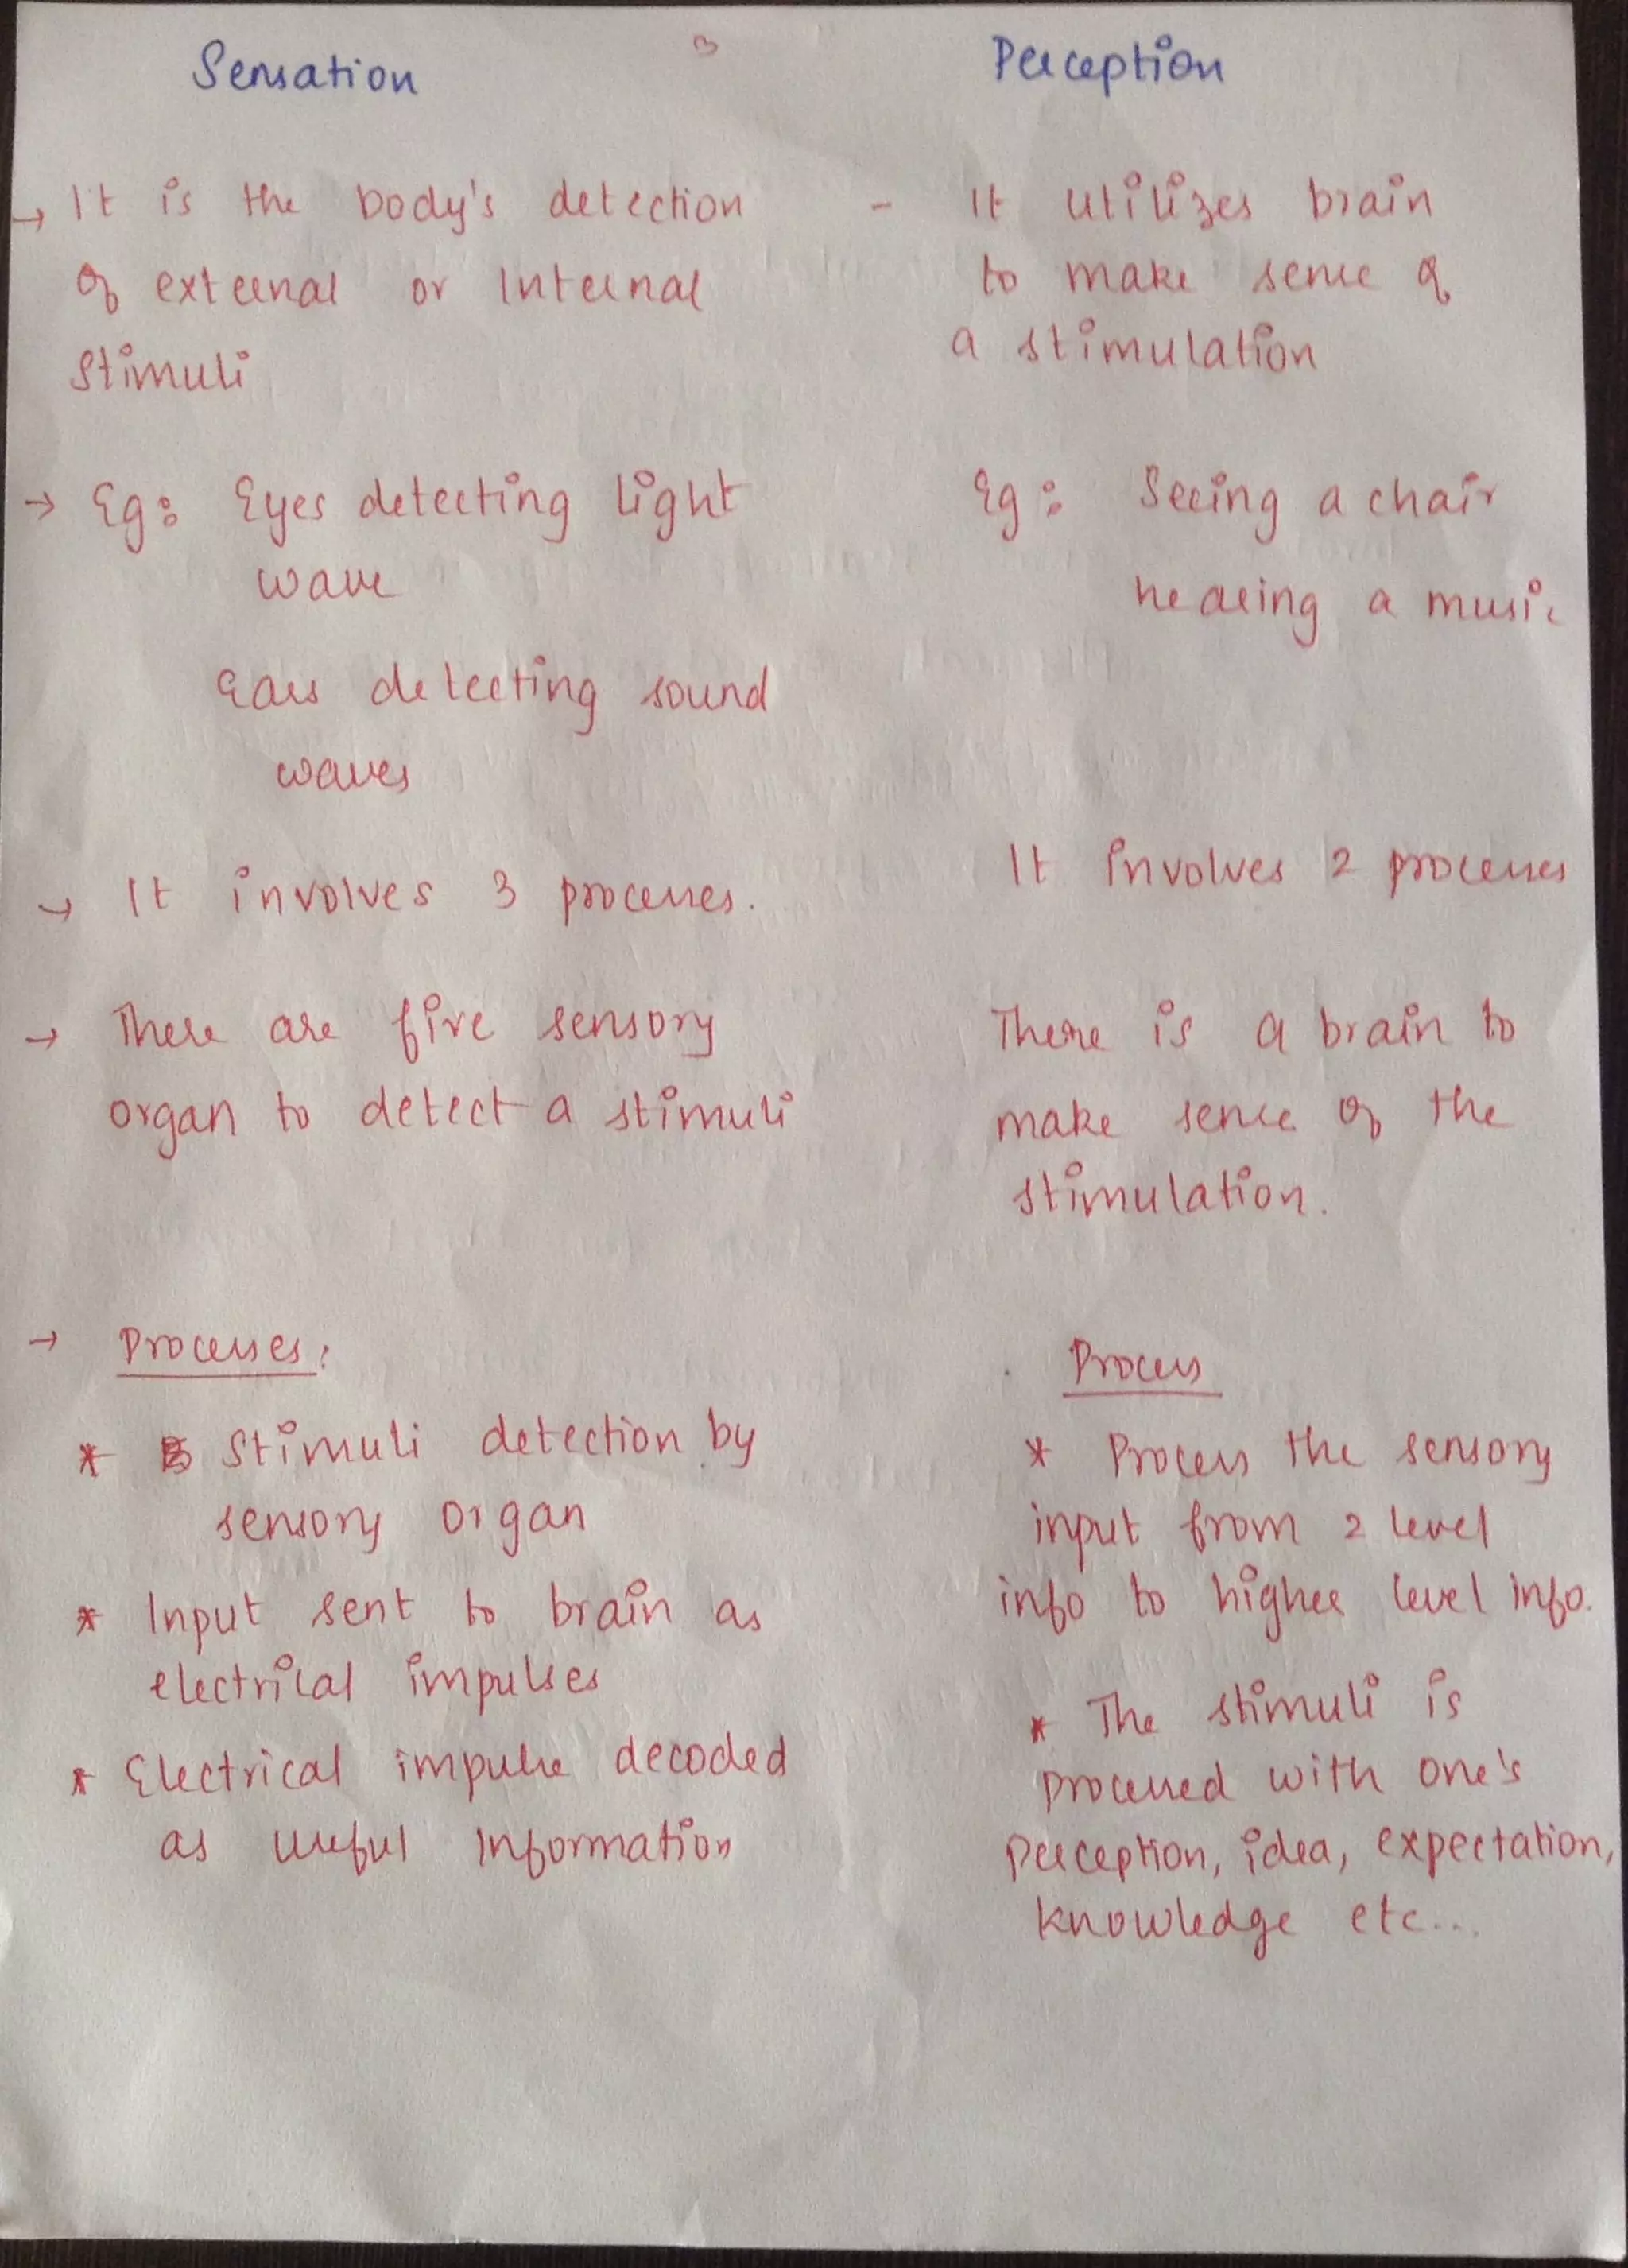 Sensation
→ It is the body's detection
of external or Internal
Stimuli
→ Eg: Eyes detecting light
wave
Ears detecting sound
waves
→ It involves 3 processes.
→ There are five sensory
organ to detect a stimuli
→ Processes:
* Stimuli detection by
sensory organ
* Input sent to brain as
electrical impulses
* Electrical impulse decoded
as useful Information
Perception
- It utilizes brain
to make sense of
a stimulation
Eg: Seeing a chair
hearing a music
It involves 2 processes
There is a brain to
make sense of the
stimulation.
Process
* Process the sensory
input from 2 level
info to higher level info.
* The stimuli is
processed with one's
perception, idea, expectation,
knowledge etc...